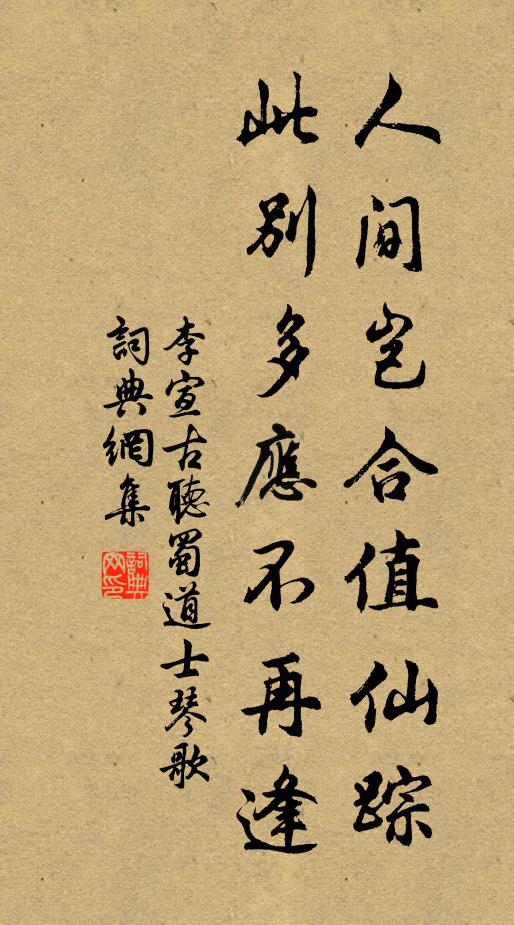 人间岂合值仙踪
此别多應不再逢
李宣古聽蜀道士琴歌
詞典網集
詞典網印